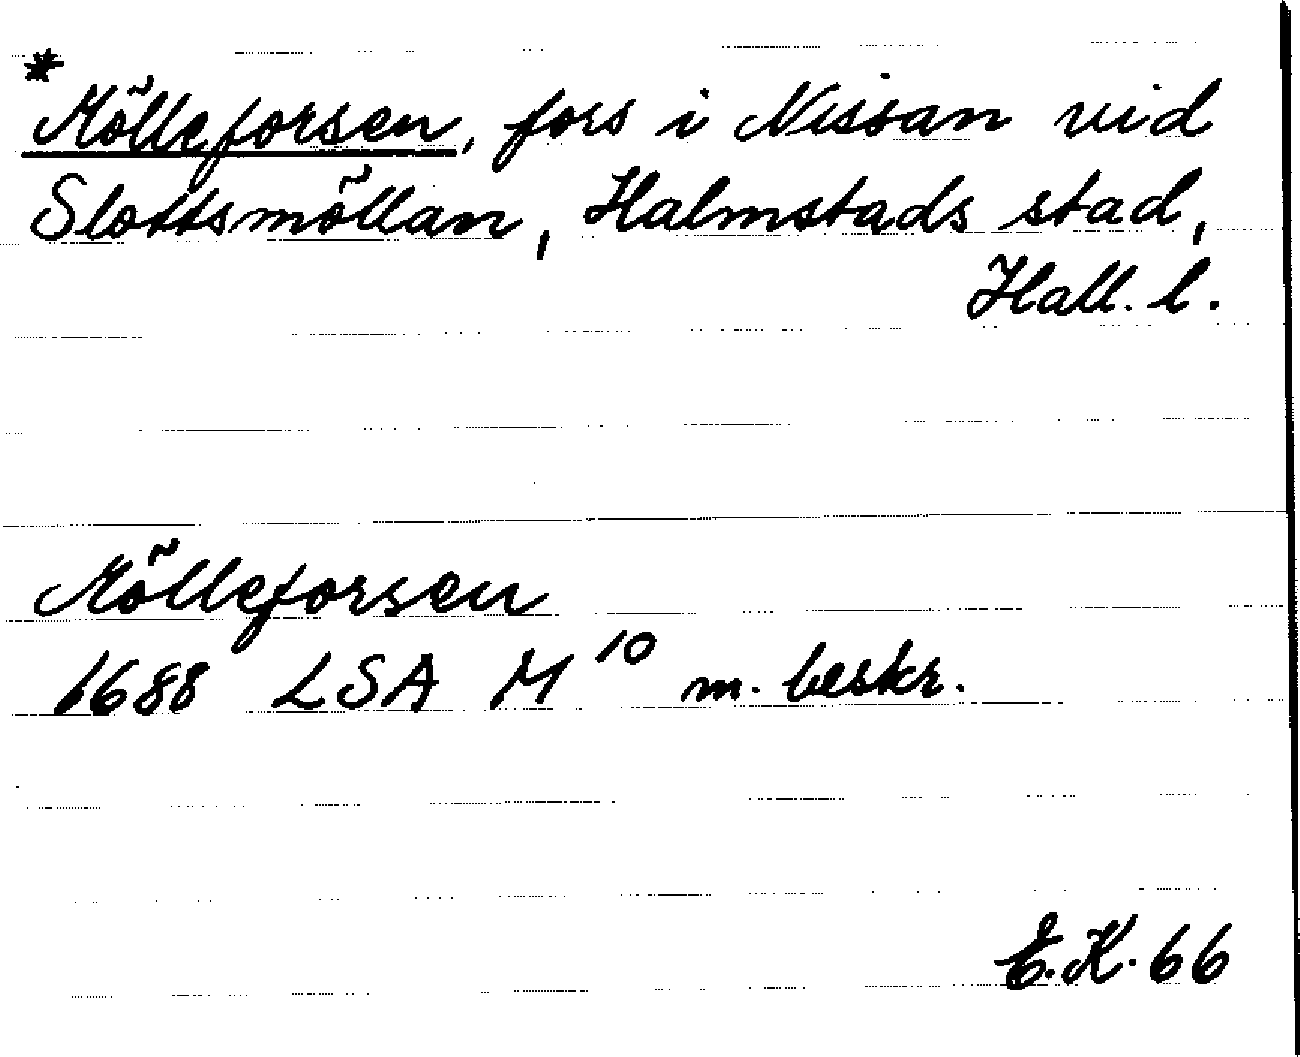 *
Mölleforsen, fors i Nissan vid
Slottsmöllan, Halmstads stad,
Hall. l.
Mölleforsen
1688 LSA M 10 m. beskr.
E.K. 66